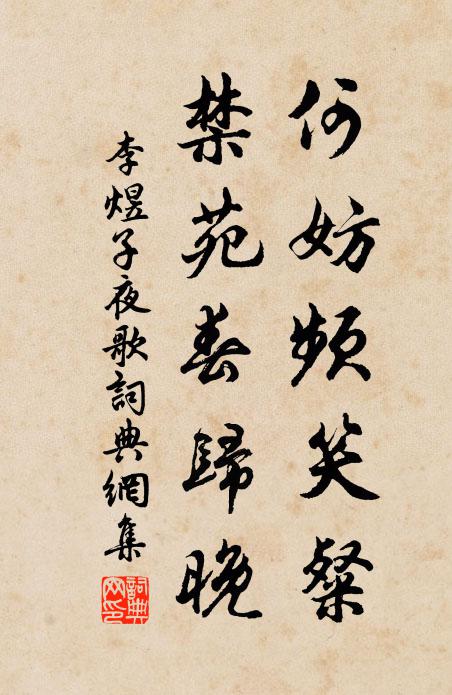 何妨頻笑粲
禁苑春歸晚
李煜子夜歌詞典網集
詞典網印